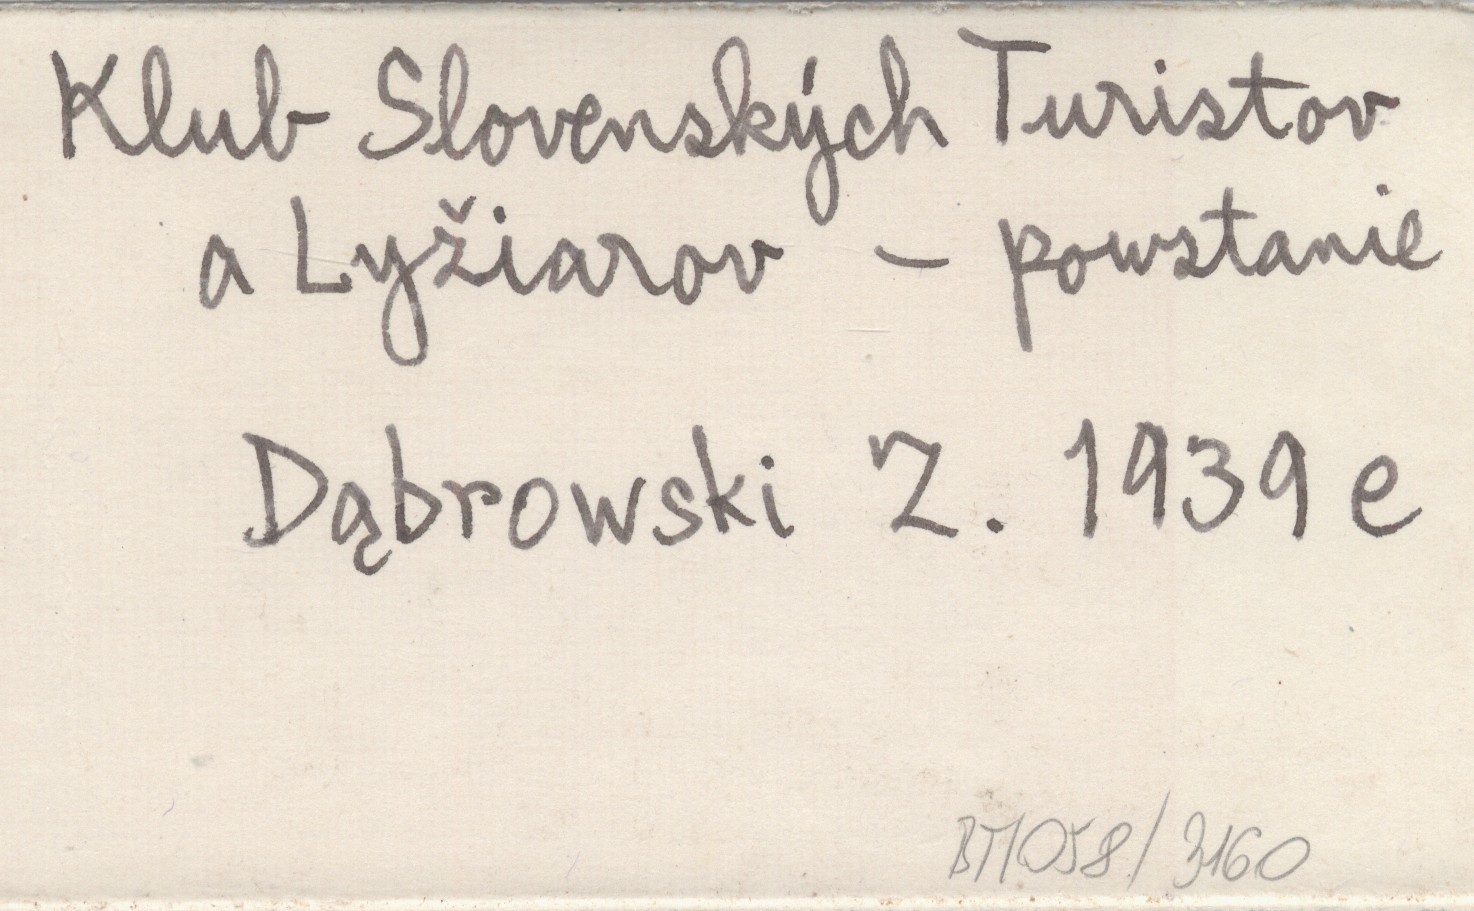 Klub Slovenských Turistov
a Lyžiarov – powstanie
Dąbrowski Z. 1939 e
BM058/3160